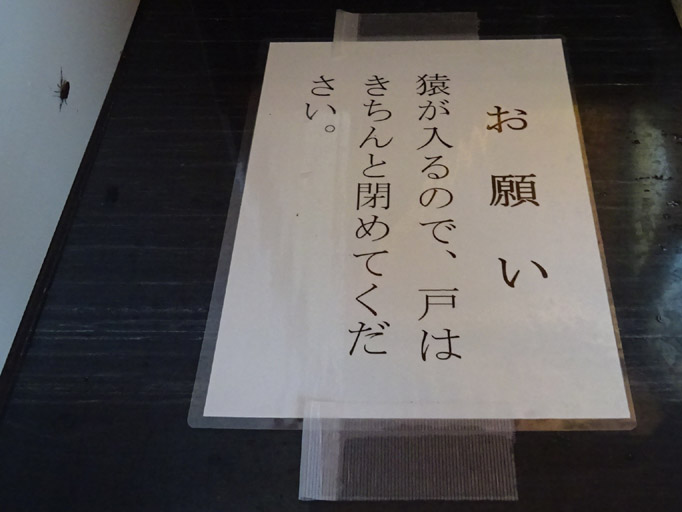 お願い
猿が入るので、戸は
きちんと閉めてくだ
さい。